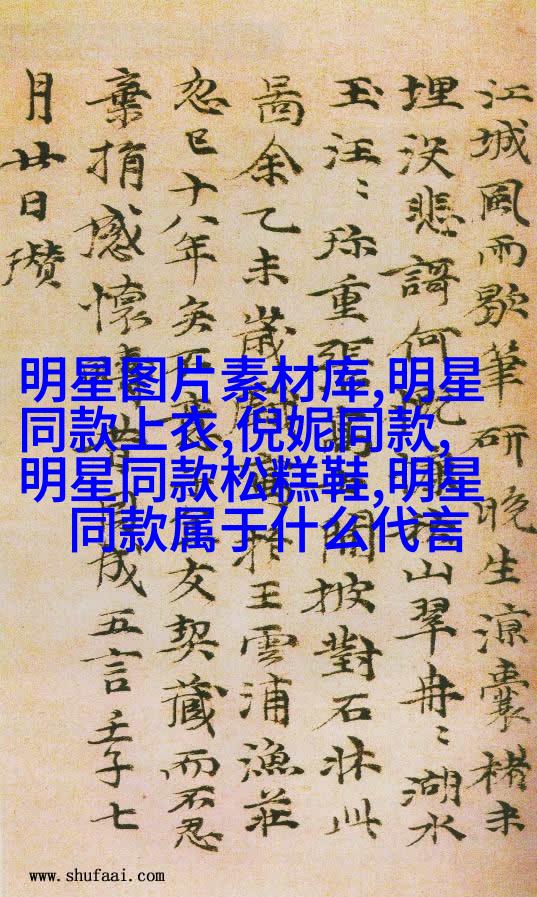 江城風雨歇筆研晚生涼囊楮未
埋没悲謌何山翠冉〻湖水
玉汪〻珎重張閒披對石牀此
啚余乙未歲於王雲浦漁莊
忽已十八年矣不意友契藏而不忍
棄捐感懷成五言壬子七
月廿日瓚
明星图片素材库,明星
同款上衣,倪妮同款,
明星同款松糕鞋,明星
同款属于什么代言
www.shufaai.com